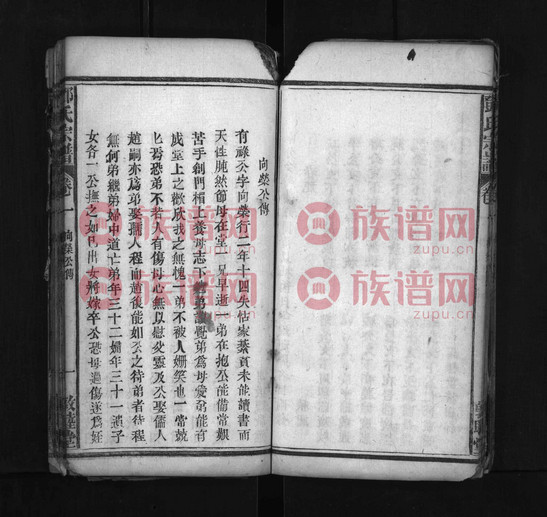 向榮公傳
有祿公字向榮行二年十四失怙家綦貧未能讀書而
天性肫然節母在堂一兄早逝一弟在抱公能備常艱
苦手創門楣上養母志下體弟
成堂上之歡欣我之無愧一弟不被人姍笑也一常兢
匕焉恐弟不若人有傷母心無以慰父靈及公娶儒人
越嗣亦爲弟娶孺人程而越後能如公之待弟者待程
無何弟繼弟婦中道亡弟年三十二婦年三十一遺子
女各一公撫之如己出女將嫁卒公恐母過傷遂爲姪
氏宗譜
卷一
向榮公傳
一
族谱网
zupu.cn
族谱网
zupu.cn
族谱网
zupu.cn
族谱网
zupu.cn